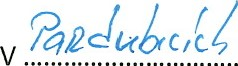 V Pardubicích